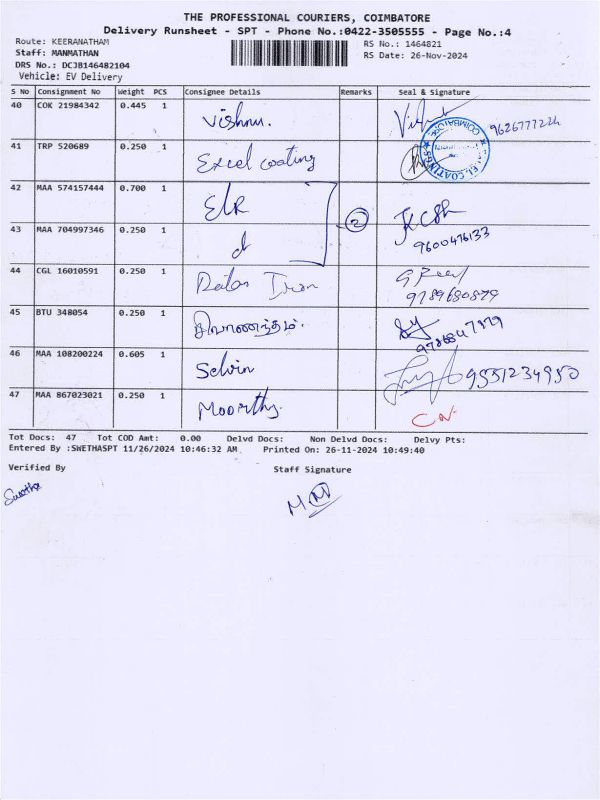 THE PROFESSIONAL COURIERS, COIMBATORE
Delivery Runsheet - SPT - Phone No.:0422-3505555 - Page No.:4
Route: KEERANATHAM
RS No.: 1464821
Staff: MANMATHAN
RS Date: 26-Nov-2024
DRS No.: DCJB146482104
Vehicle: EV Delivery
S No Consignment No Weight PCS Consignee Details Remarks Seal & Signature
40 COK 21984342 0.445 1 Vishnu. 9626777224
41 TRP 520689 0.250 1 Excel coating
42 MAA 574157444 0.700 1 ELR
43 MAA 704997346 0.250 1 d 2 9600476133
44 CGL 16010591 0.250 1 9789680899
45 BTU 348054 0.250 1 சிவானந்தம்.
46 MAA 108200224 0.605 1 Selvin 9551234950
47 MAA 867023021 0.250 1 Moorthy.
Tot Docs: 47 Tot COD Amt: 0.00 Delvd Docs: Non Delvd Docs: Delvy Pts:
Entered By :SWETHASPT 11/26/2024 10:46:32 AM Printed On: 26-11-2024 10:49:40
Verified By Staff Signature
Swetha